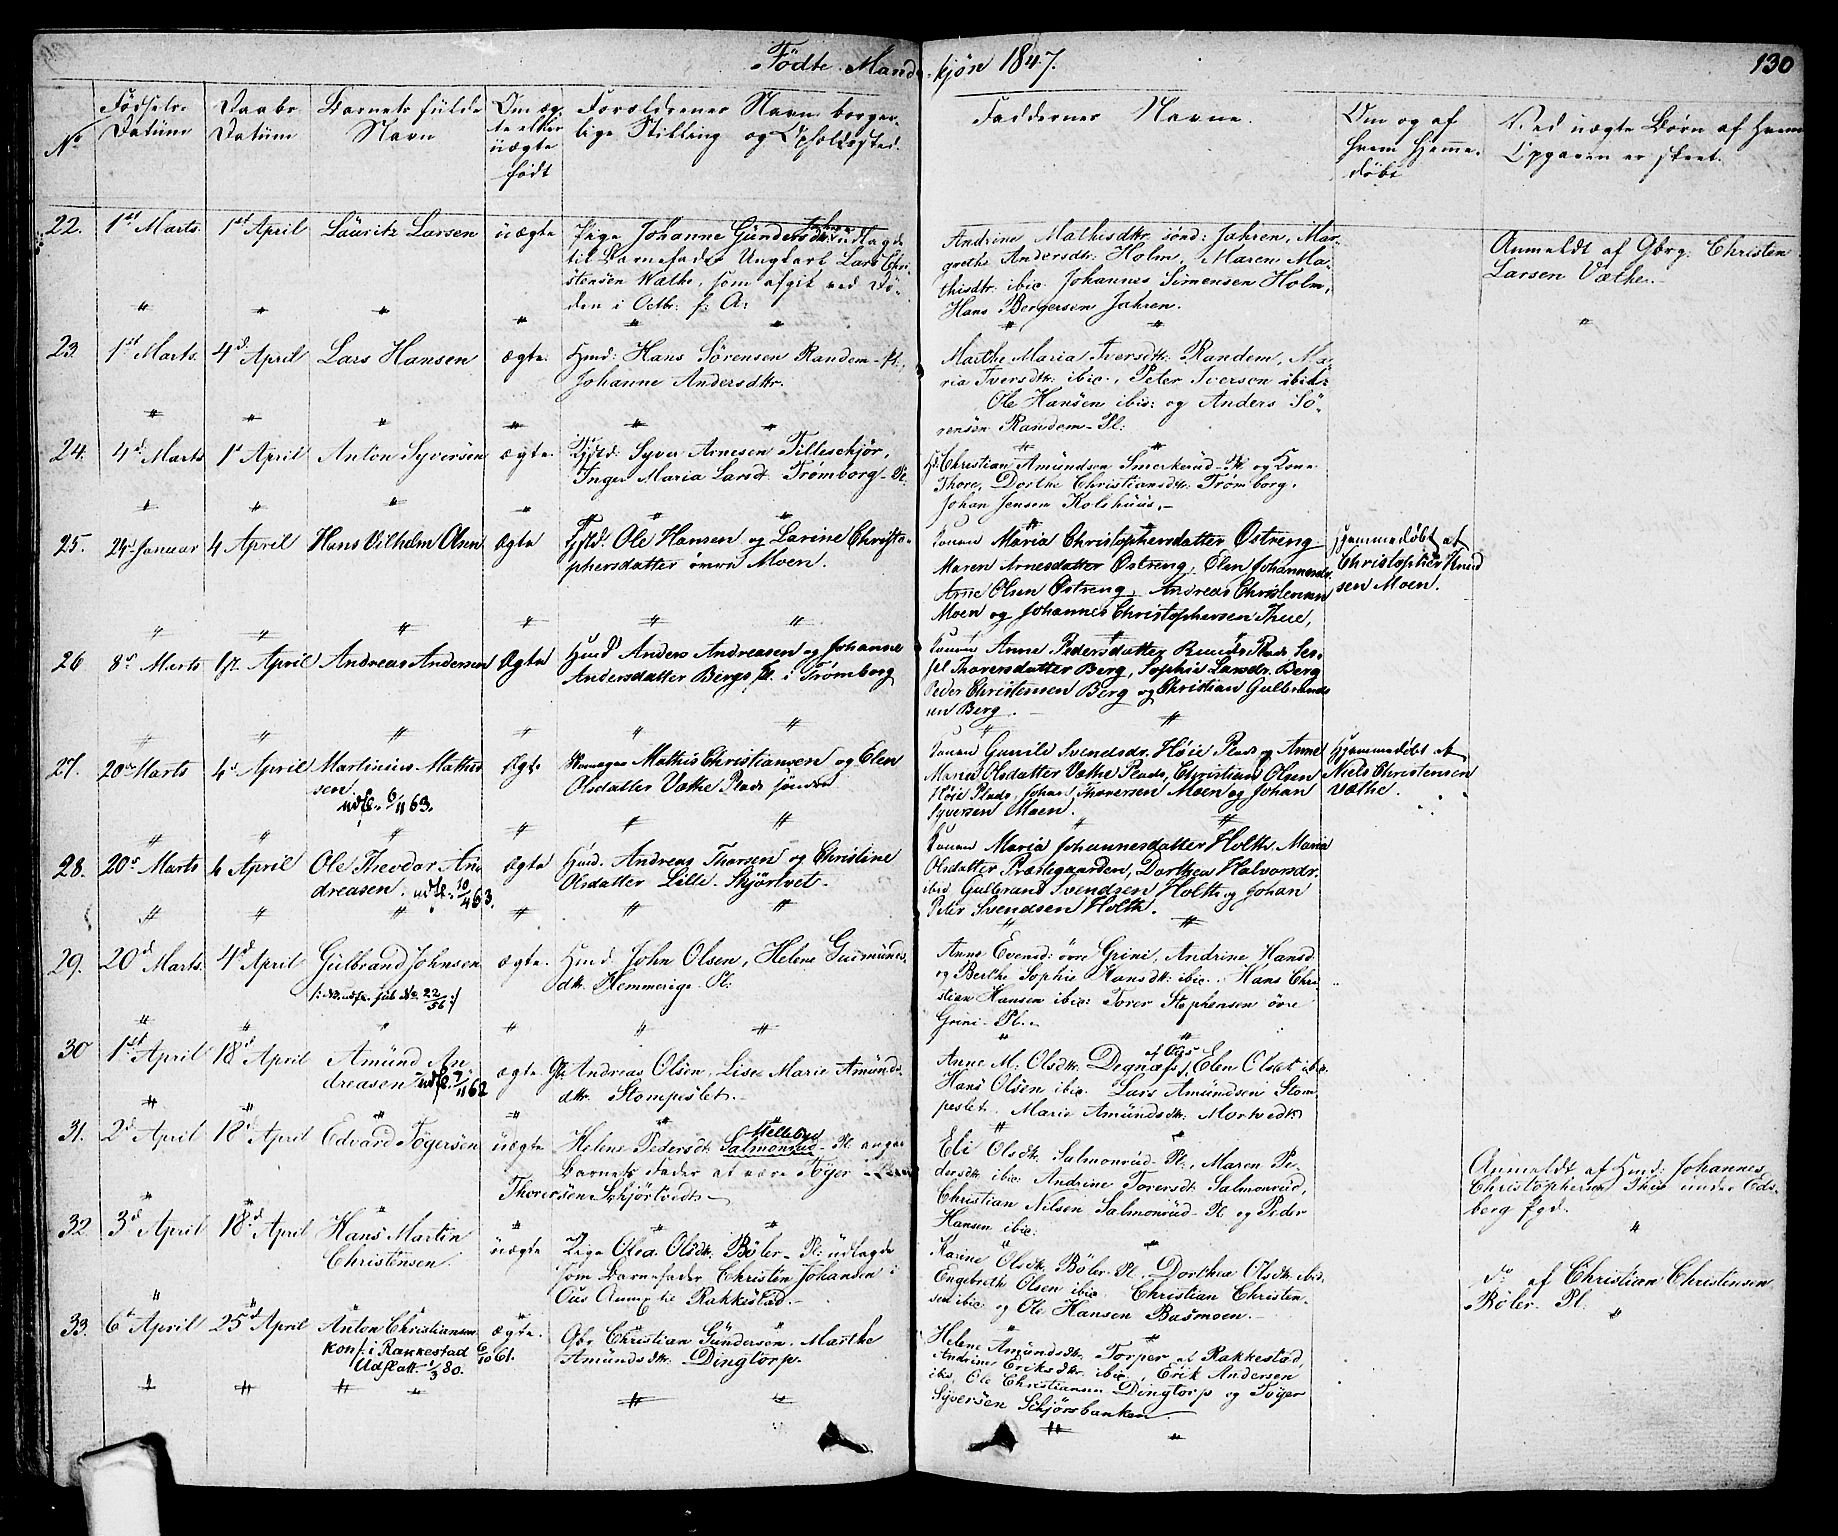 Födte Mandkjøn 1847.
130
No
Födsels Datum
Daabs Datum
Barnets fulde Navn
Om ægte eller uægte født
Forældrenes Navn borgerlige Stilling og Opholdssted.
Faddernes Navne.
Om og af hvem hjemmedøbt
Ved uægte Børn af hvem Opgaven er skeet.
22.
1st Marts
1st April
Lauritz Larsen
uægte
Pige Johanne Gundersdtr: Jahren udlagde
til Barnefader Ungkarl Lars Chri-
stensen Wæthe, som afgik ved Dö-
den i Octbr. f: A:
Andrine Mathisdtr. sönd: Jahren, Mar-
grethe Andersdtr: Holm, Maren Ma-
thisdtr. ibid. Johannes Simensen Holm,
Hans Bergersen Jahren.
Anmeldt af Gbrg: Christen
Larsen Væthe.
23.
1st Marts
4d April
Lars Hansen
ægte.
Hmd: Hans Sörensen Randem-Pl.,
Johanne Andersdtr.
Marthe Maria Iversdtr: Randem, Ma-
ria Iversdtr. ibid., Peter Iversen ibid:
Ole Hansen ibid: og Anders Sö-
rensen Randem-Pl:
24.
4d Marts
1st April
Anton Syversen
ægte.
Syver Arnesen Tilleschjör,
Inger Maria Larsd. Trømborg-Pl.
Christian Amundsen Smerkerud-Pl og Kone
Thore, Dorthe Christiansdtr: Trømborg,
Johan Jensen Kolshuus,-
25.
24d Januar
4 April
Hans Vilhelm Olsen
Ægte
Ole Hansen og Larine Christo-
phersdatter övre Moen.
Konen Maria Christophersdatter Østreng
Maren Arnesdatter Østreng, Elen Johannesdr.
Arne Olsen Østreng, Andreas Christensen
Moen og Johannes Christophersen Thue,
Hjemmedøbt af
Christopher Knud
sen Moen.
26
8d Marts
April
Andreas Andersen
Ægte
Husd Anders Andreasen og Johanne
Andersdatter Bergs Pl. i Trømborg
Konen Anne Pedersdatter Ruuds Plads
Thoresdatter Berg, Sophie Larsdr. Berg
Peder Christensen Berg og Christian Gulbrand
sen Berg.
27.
20de Marts
4d April
Martinius Mathis
sen.
udfl. 6/11 63.
Ægte
Mathis Christiansen og Elen
Olsdatter Væthe Plads søndre
Konen Gunild Svendsdr. Høie Plads og Anne
Marie Olsdatter Væthe Plads, Christian Olsen
Høie Plads, Johan Thoresen Moen og Johan
Syversen Moen.
Hjemmedøbt af
Niels Christensen
Væthe.
28.
20d Marts
6 April
Ole Theodor An
dreasen.
udfl. 10/4 63.
Ægte
Husd. Andreas Thorsen og Christine
Olsdatter Lille Skjørtvet.
Konen Maria Johannesdatter Holth Maria
Olsdatter Præstegaarden, Dorthea Halvorsdr.
ibid Gulbrand Svendsen Holth og Johan
Peter Svendsen Holth.
29.
20d Marts
4d April
Gulbrand Johnsen
22/56
ægte.
Hmd. John Olsen, Helene Gudmunds-
dtr. Hemmerige Pl:
Anne Evensd: övre Grini, Andrine Hansd
og Berthe Sophie Hansdtr: ibid. Hans Chri-
stian Hansen ibid: Torer Stephensen övre
Grini-Pl.
30
1st April
18d April
Amund An-
dreasen
udfl. 7/11 62
ægte
Gbr. Andreas Olsen, Lise Marie Amunds-
dtr. Stompeslet.-
Anne M: Olsdtr. Degnæs, Elen Olsdt ibid.
Hans Olsen ibid. Lars Amundsen Stom-
peslet. Marie Amundsdtr: Mortvedt
31.
2d April
18d April
Edvard Togersen
uægte
Helene Pedersdt. Salmonrud-Pl. angav
Mellebye
Barnets Fader at være Toger
Thoresen Schjörtvedt
Eli Olsdtr: Salmonrud-Pl., Maren Pe-
dersdtr ibid: Andrine Torersdt. Salmonrud,
Christian Nilsen Salmonrud-Pl og Peder
Hansen ibid:
Anmeldt af Hmd: Johannes
Christophersen Thue under Eds-
berg Pgd.
32
3d April
18d April
Hans Martin
Christensen.
uægte
Pige Olea Olsdtr: Böler-Pl: udlagde
som Barnefader Christen Johansen i
Ous Annex til Rakkestad.-
Karine Olsdtr: Böler Pl., Dorthea Olsdtr. ibid.
Engebreth Olsen ibid. Christian Christen-
sen ibid: og Ole Hansen Basmoen.-
do af Christian Christensen
Böler. Pl.
33.
6te April
25d April
Anton Christiansen
konf: i Rakkestad 6/10 61.
Udfl att. 1/3 80.
ægte.
Gbr Christian Gundersen. Marthe
Amundsdtr. Dingtorp.
Helene Amundsdtr. Torper af Rakkestad,
Andrine Eriksdtr: ibid, Erik Andersen
ibid, Ole Christiansen Dingtorp og Toger
Syversen Schjörsbanken.